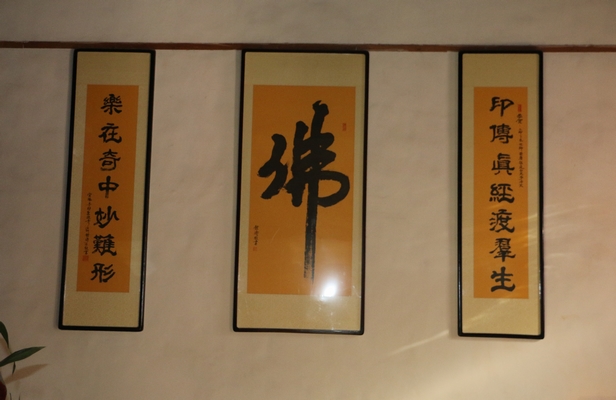 印傳眞經渡羣生
佛
樂在奇中妙難形